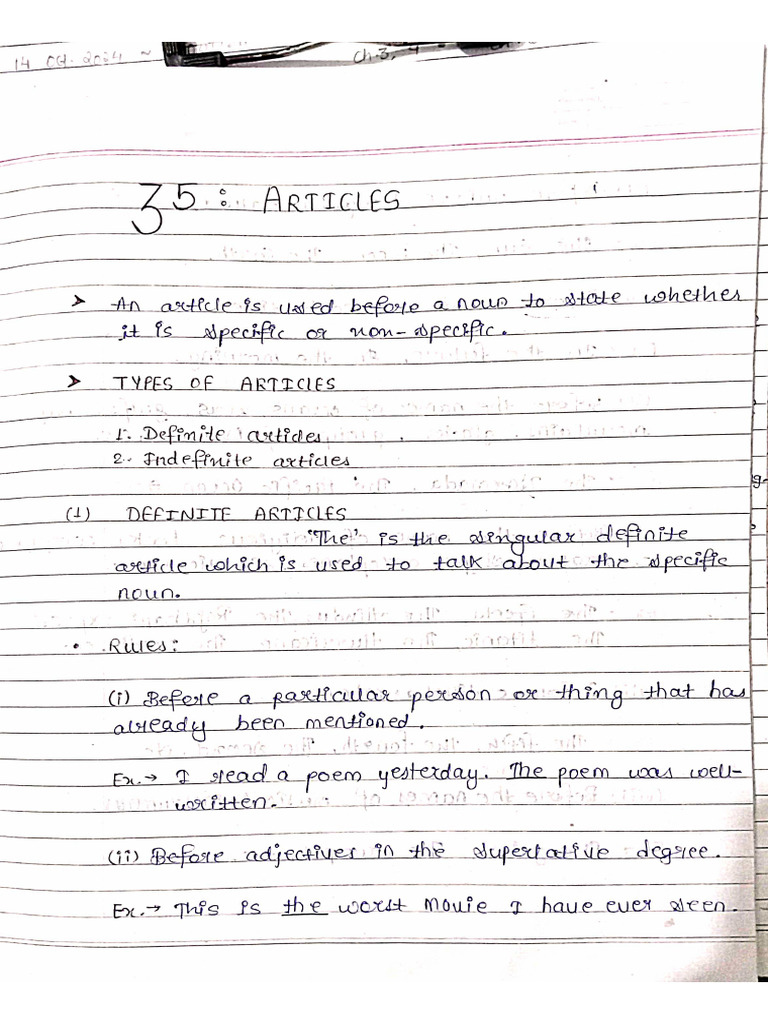 14 Oct. 2024 ~ Ch.3, 4
35: ARTICLES
➤ An article is used before a noun to state whether
it is specific or non-specific.
➤ TYPES OF ARTICLES
1. Definite articles
2. Indefinite articles
(1) DEFINITE ARTICLES
'The' is the singular definite
article which is used to talk about the specific
noun.
• Rules:
(i) Before a particular person or thing that has
already been mentioned.
Ex.→ I read a poem yesterday. The poem was well-
written.
(ii) Before adjectives in the superlative degree.
Ex.→ This is the worst movie I have ever seen.